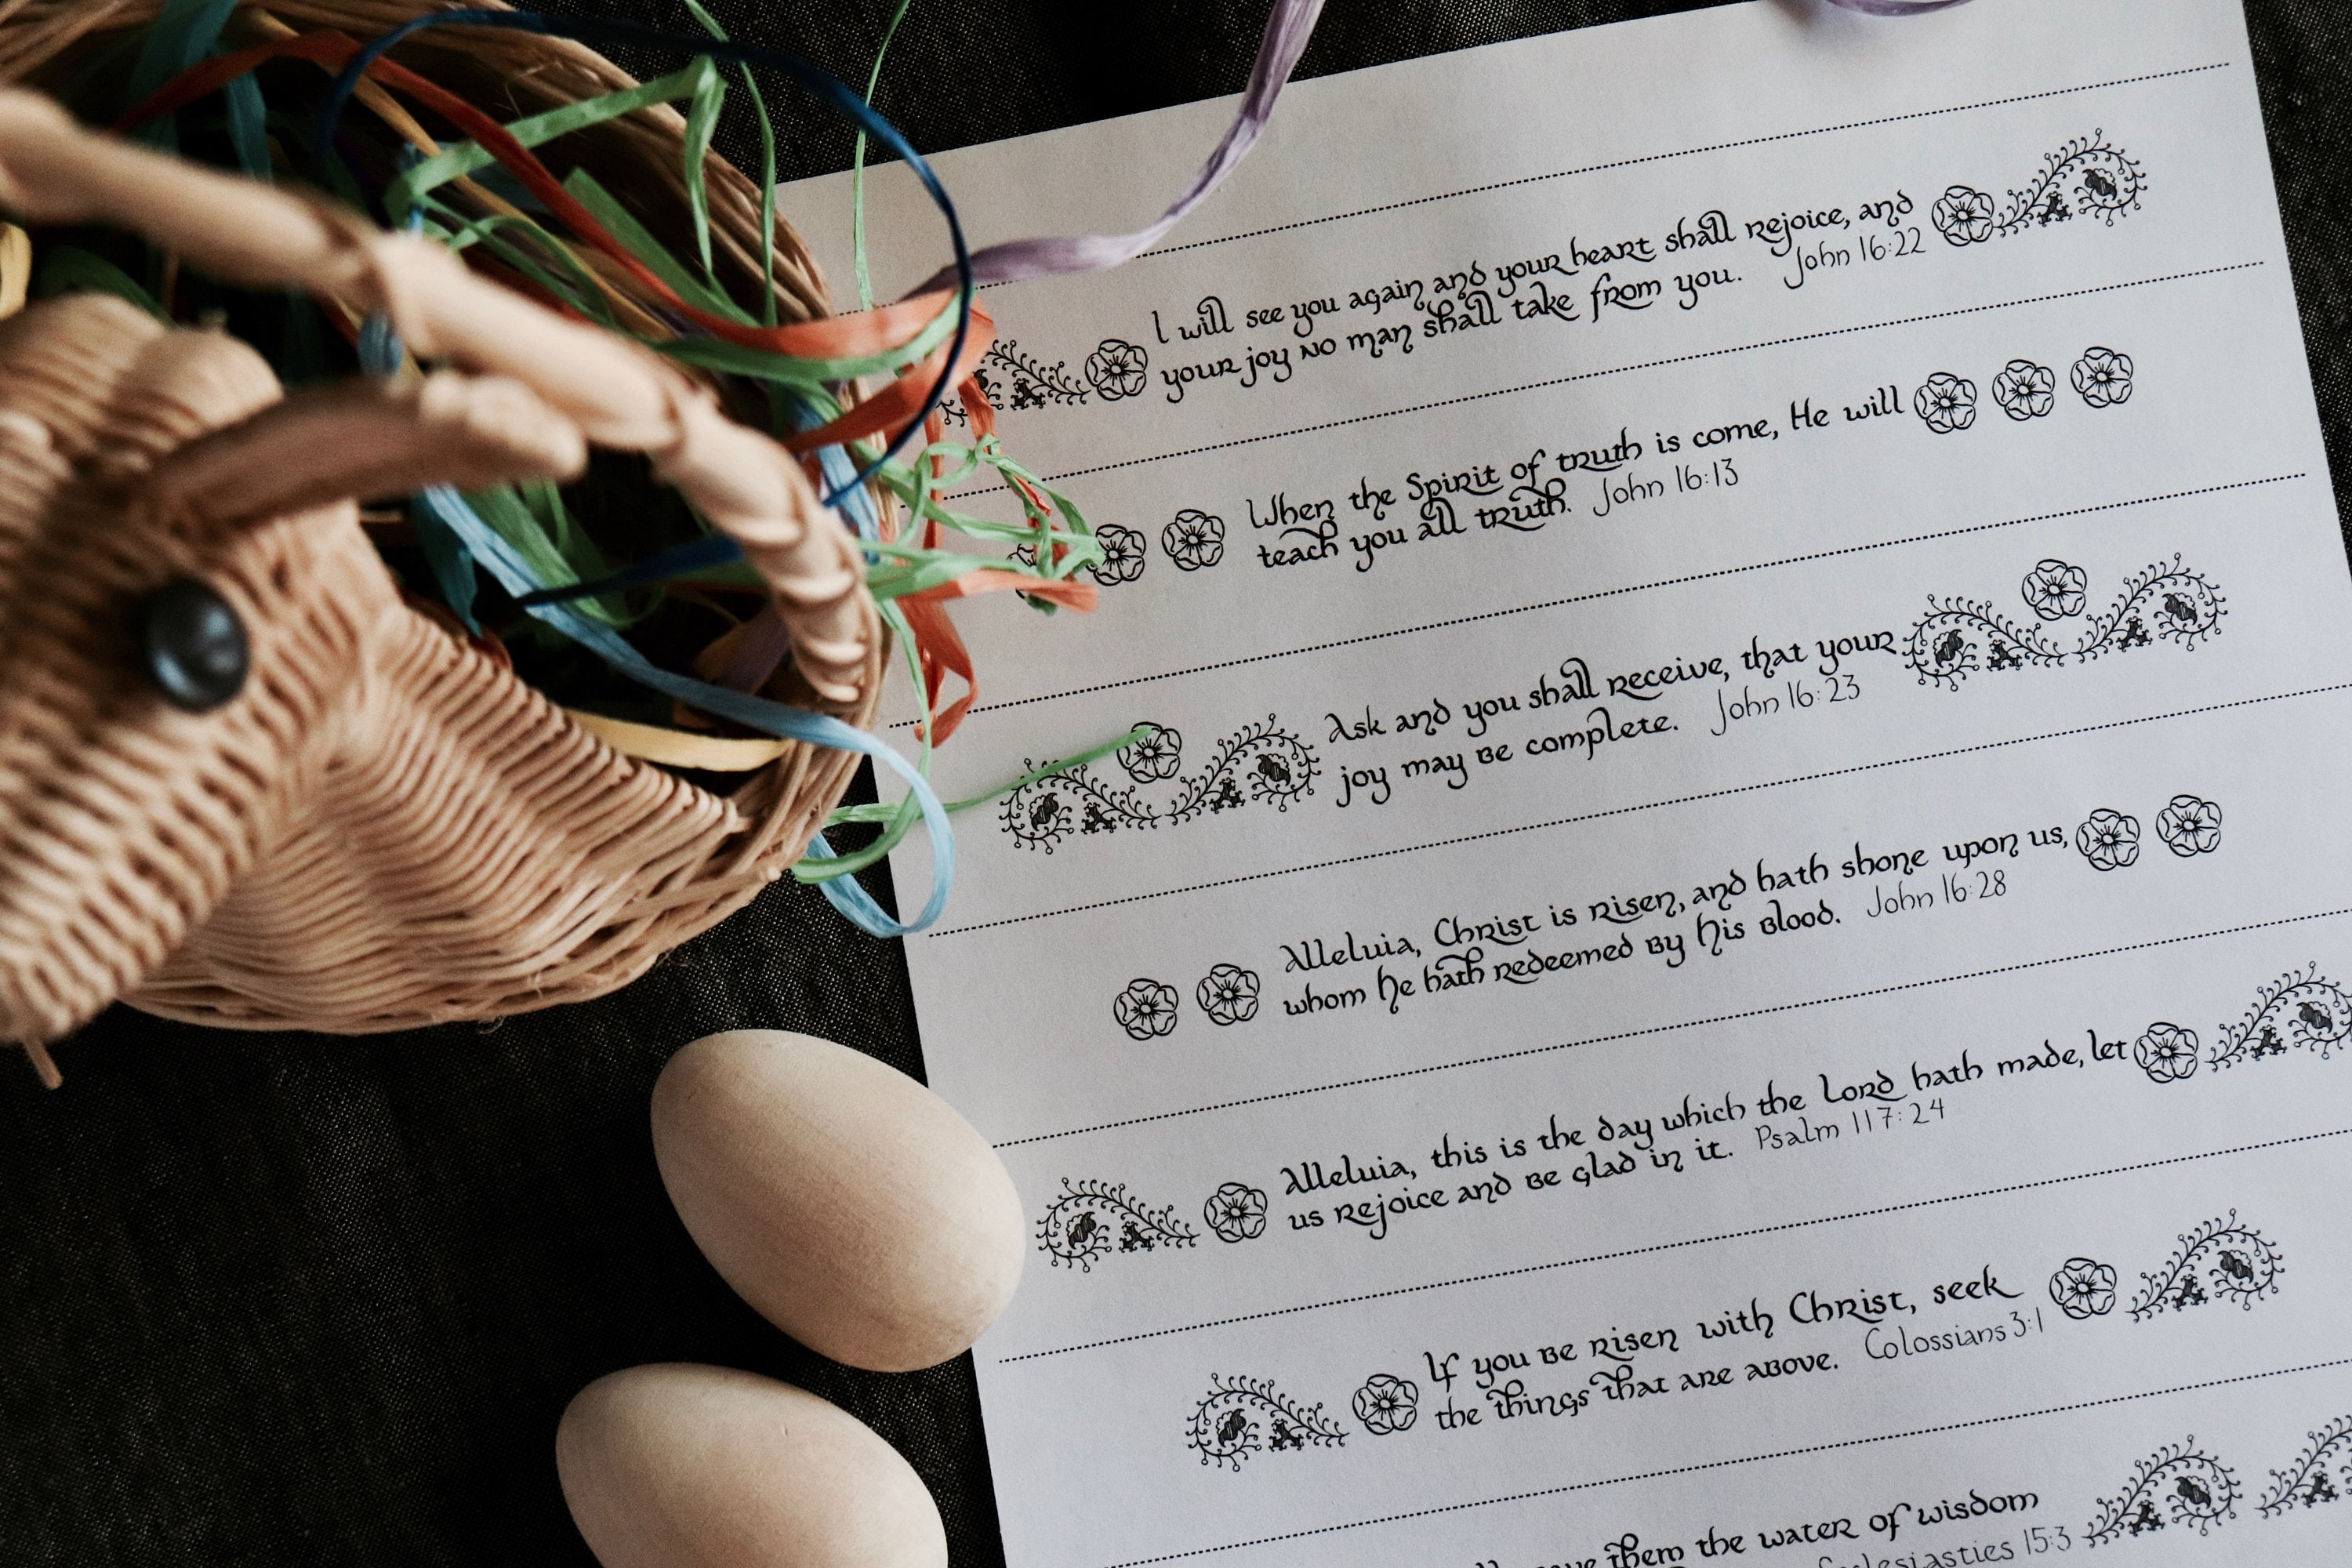 I will see you again and your heart shall rejoice, and
your joy no man shall take from you. John 16:22
When the Spirit of truth is come, He will
teach you all truth. John 16:13
Ask and you shall receive, that your
joy may be complete. John 16:23
Alleluia, Christ is risen, and hath shone upon us,
whom He hath redeemed by His Blood. John 16:28
Alleluia, this is the day which the Lord hath made, let
us rejoice and be glad in it. Psalm 117:24
If you be risen with Christ, seek
the things that are above. Colossians 3:1
them the water of wisdom
15:3